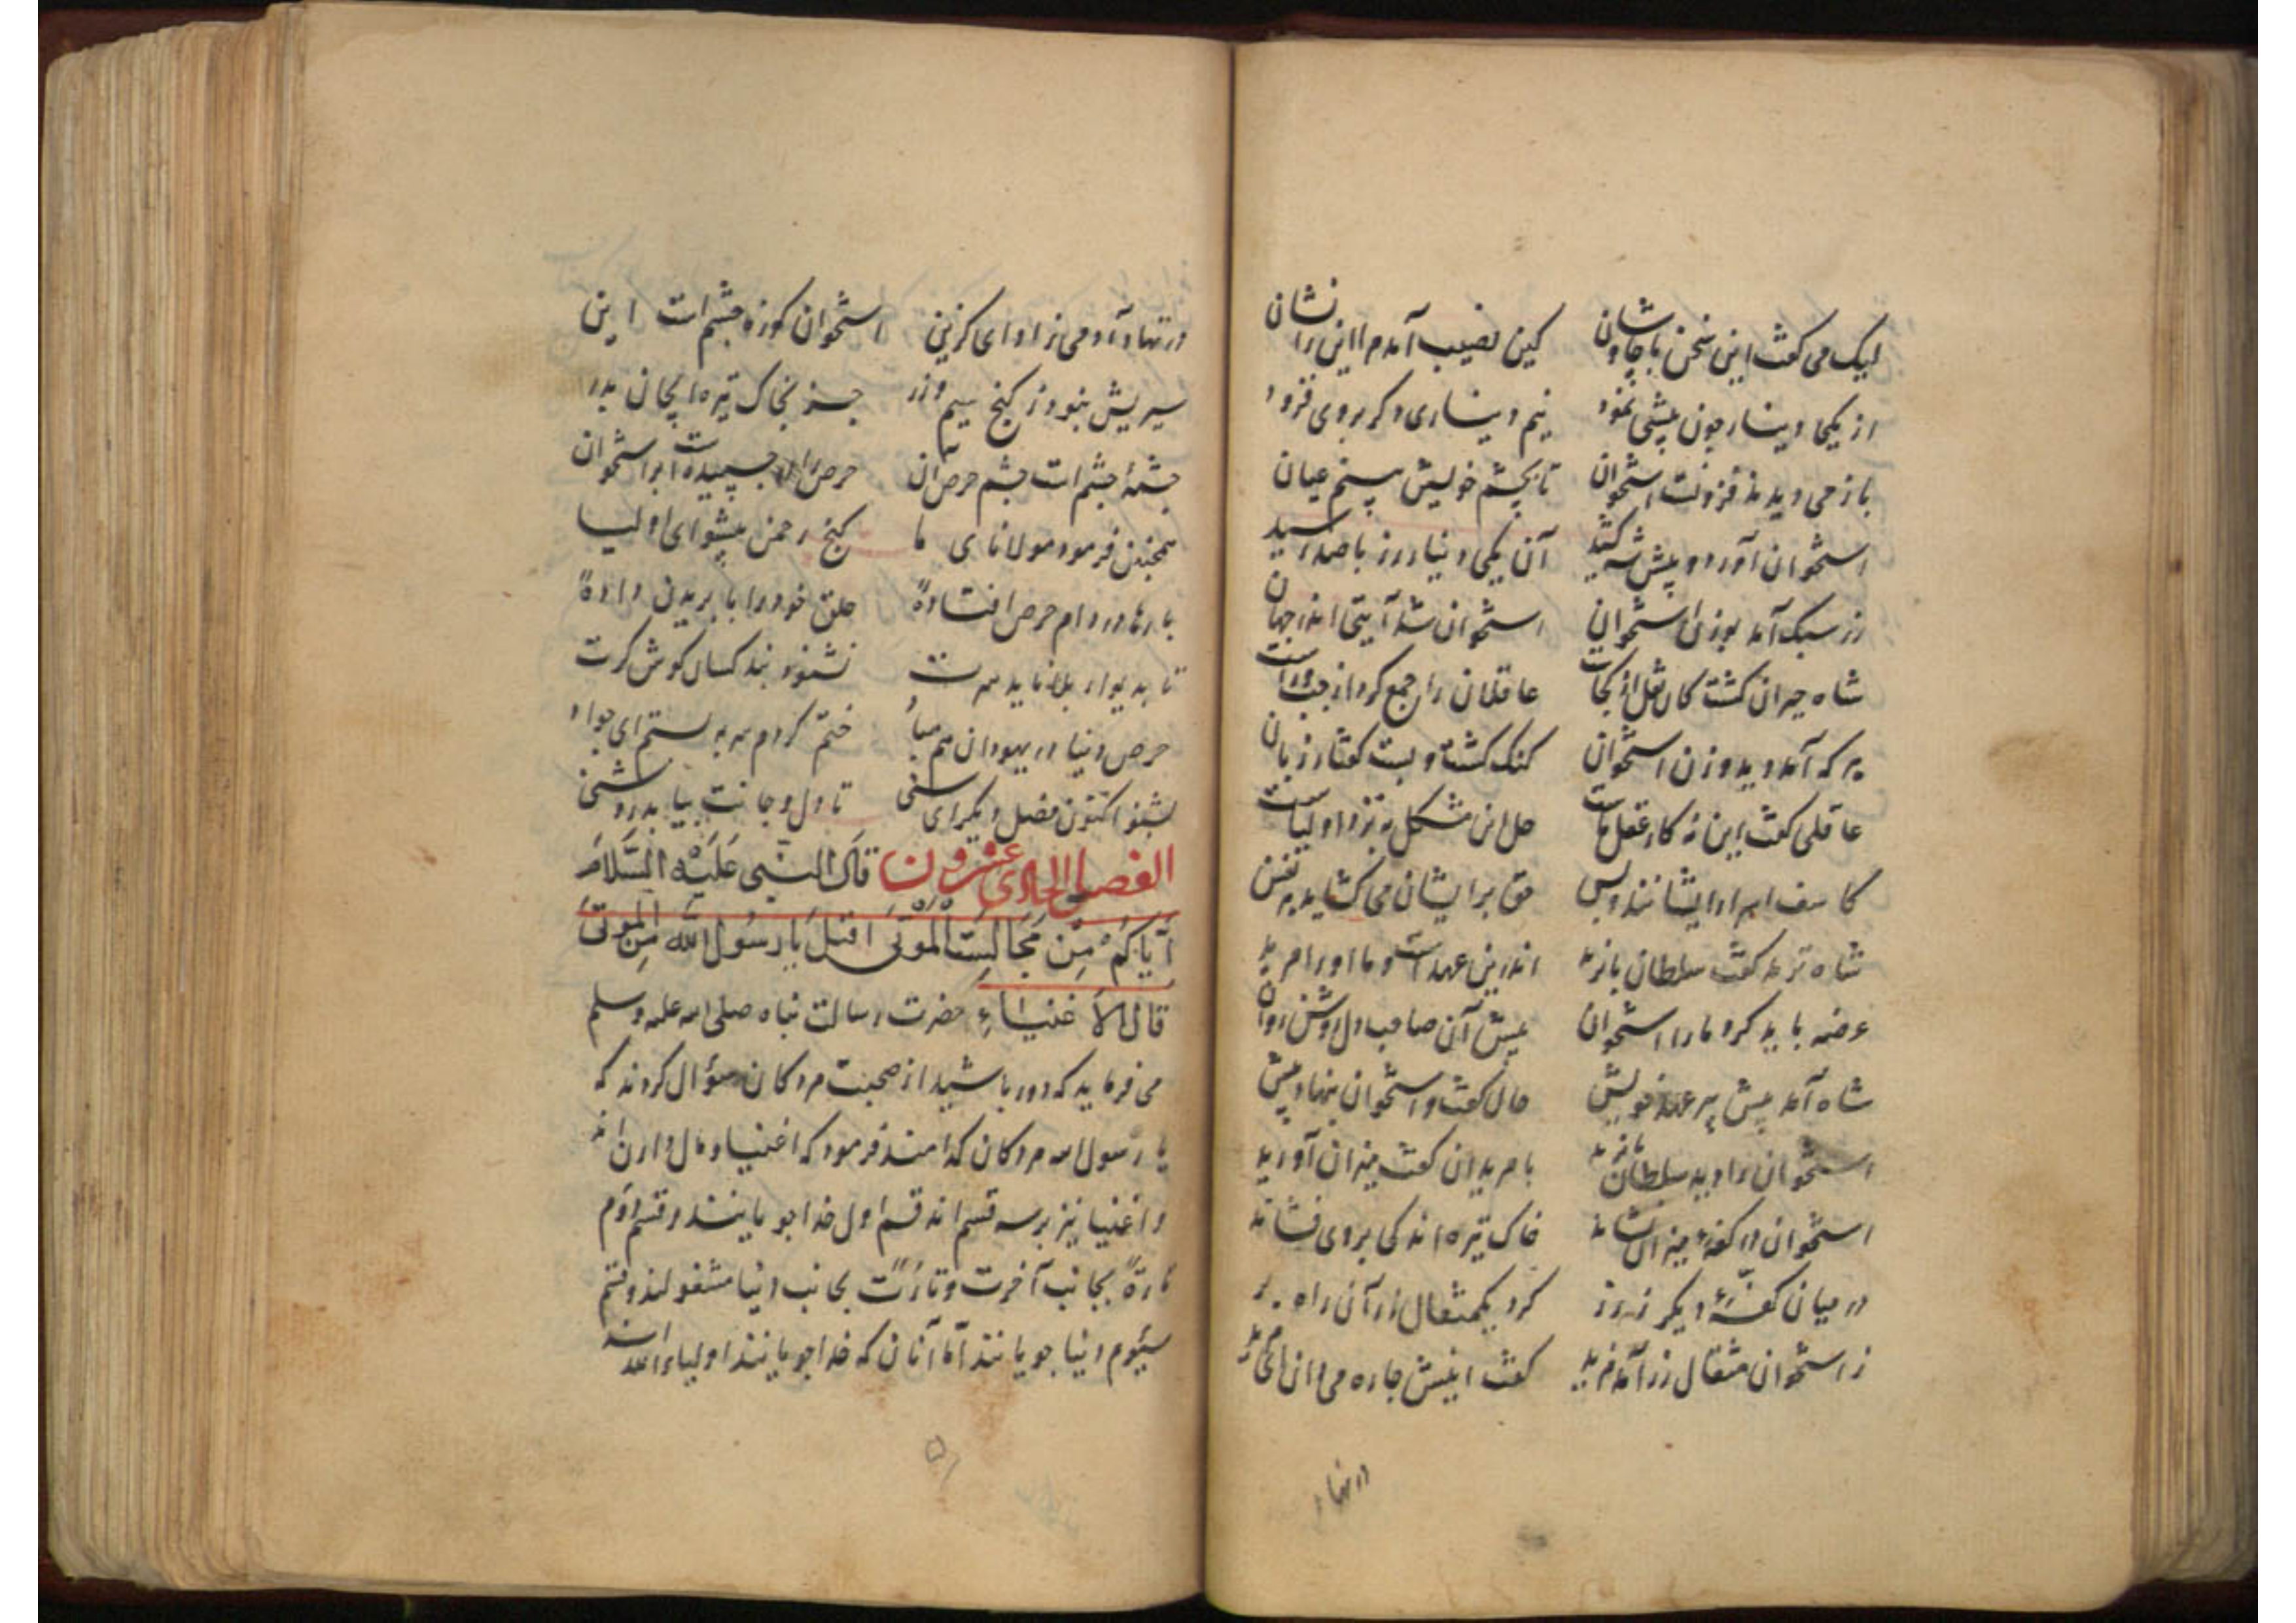 لیک می گفت این سخن با چاوشان کین نصیب آمد مرا این را نشان
از یکی دینار چون پیشی نمود نیم دیناری دگر بروی فزود
باز می دیدند فزونست استخوان تا بچشم خویش بینم عیان
استخوان آورد و پیش شه کشید آن یکی دینار زر با صد رسید
زر سبک آمد بوزن استخوان استخوان شد آیتی اندر جهان
شاه حیران گشت کان ثقل از کجاست عاقلان را جمع کرد از چپ و راست
هر که آمد دید وزن استخوان گنگ گشت و بست گفتار زبان
عاقلی گفت این نه کار عقل ماست حل این مشکل به نزد اولیاست
کاشف اسرار ایشانند و بس حق برایشان می گشاید هر نفس
شاه ترمد گفت سلطان بایزید اندرین عهدست و ما او را مرید
عرضه باید کرد ما را استخوان پیش آن صاحب دل روشن روان
شاه آمد پیش پیر عهد خویش حال گفت و استخوان بنهاد پیش
استخوان را دید سلطان بایزید با مریدان گفت میزان آورید
استخوان در کفهٔ میزان نشاند خاک تیره اندکی بروی فشاند
در میان کفهٔ دیگر ز زر کرد یکمثقال زر آن راه بر
ز استخوان مثقال زر آمد مزید گفت اینش چاره می دان ای مرید
در نهاد
در نهاد آدمی زاد ای گزین استخوان کوزه چشم است این
سیریش نبود ز گنج سیم و زر جز بخاک تیره ای جان پدر
چشمهٔ چشم است چشم حرص آن حرص را چسپیده است بر استخوان
همچنین فرمود مولانای ما گنج رحمن پیشوای اولیا
بارها در دام حرص افتادهٔ حلق خود را با بریدن دادهٔ
تا بدیوار بلا ناید سرت نشنود پند کسان گوش کرت
حرص دنیا در یهودان هم مباد ختم کردم سر به بستم ای جواد
بشنو اکنون فصل دیگر ای سنی تا دل و جانت بیابد روشنی
الفصل الحادی عشرون قال النبی علیه السلام
ایاکم من مجالست الموتی اقتل یا رسول الله من الموتی
قال الاغنیاء حضرت رسالت پناه صلی الله علیه وسلم
می فرماید که دور باشید از صحبت مردکان سؤال کردند که
یا رسول الله مردکان کدامند فرمود که اغنیا و مال داران اند
و اغنیا نیز بر سه قسم اند قسم اول خدا جویانند و قسم دوم
تارةً بجانب آخرت و تارةً بجانب دنیا مشغولند و قسم
سیوم دنیا جویانند اما آنان که خدا جویانند اولیاء الله اند